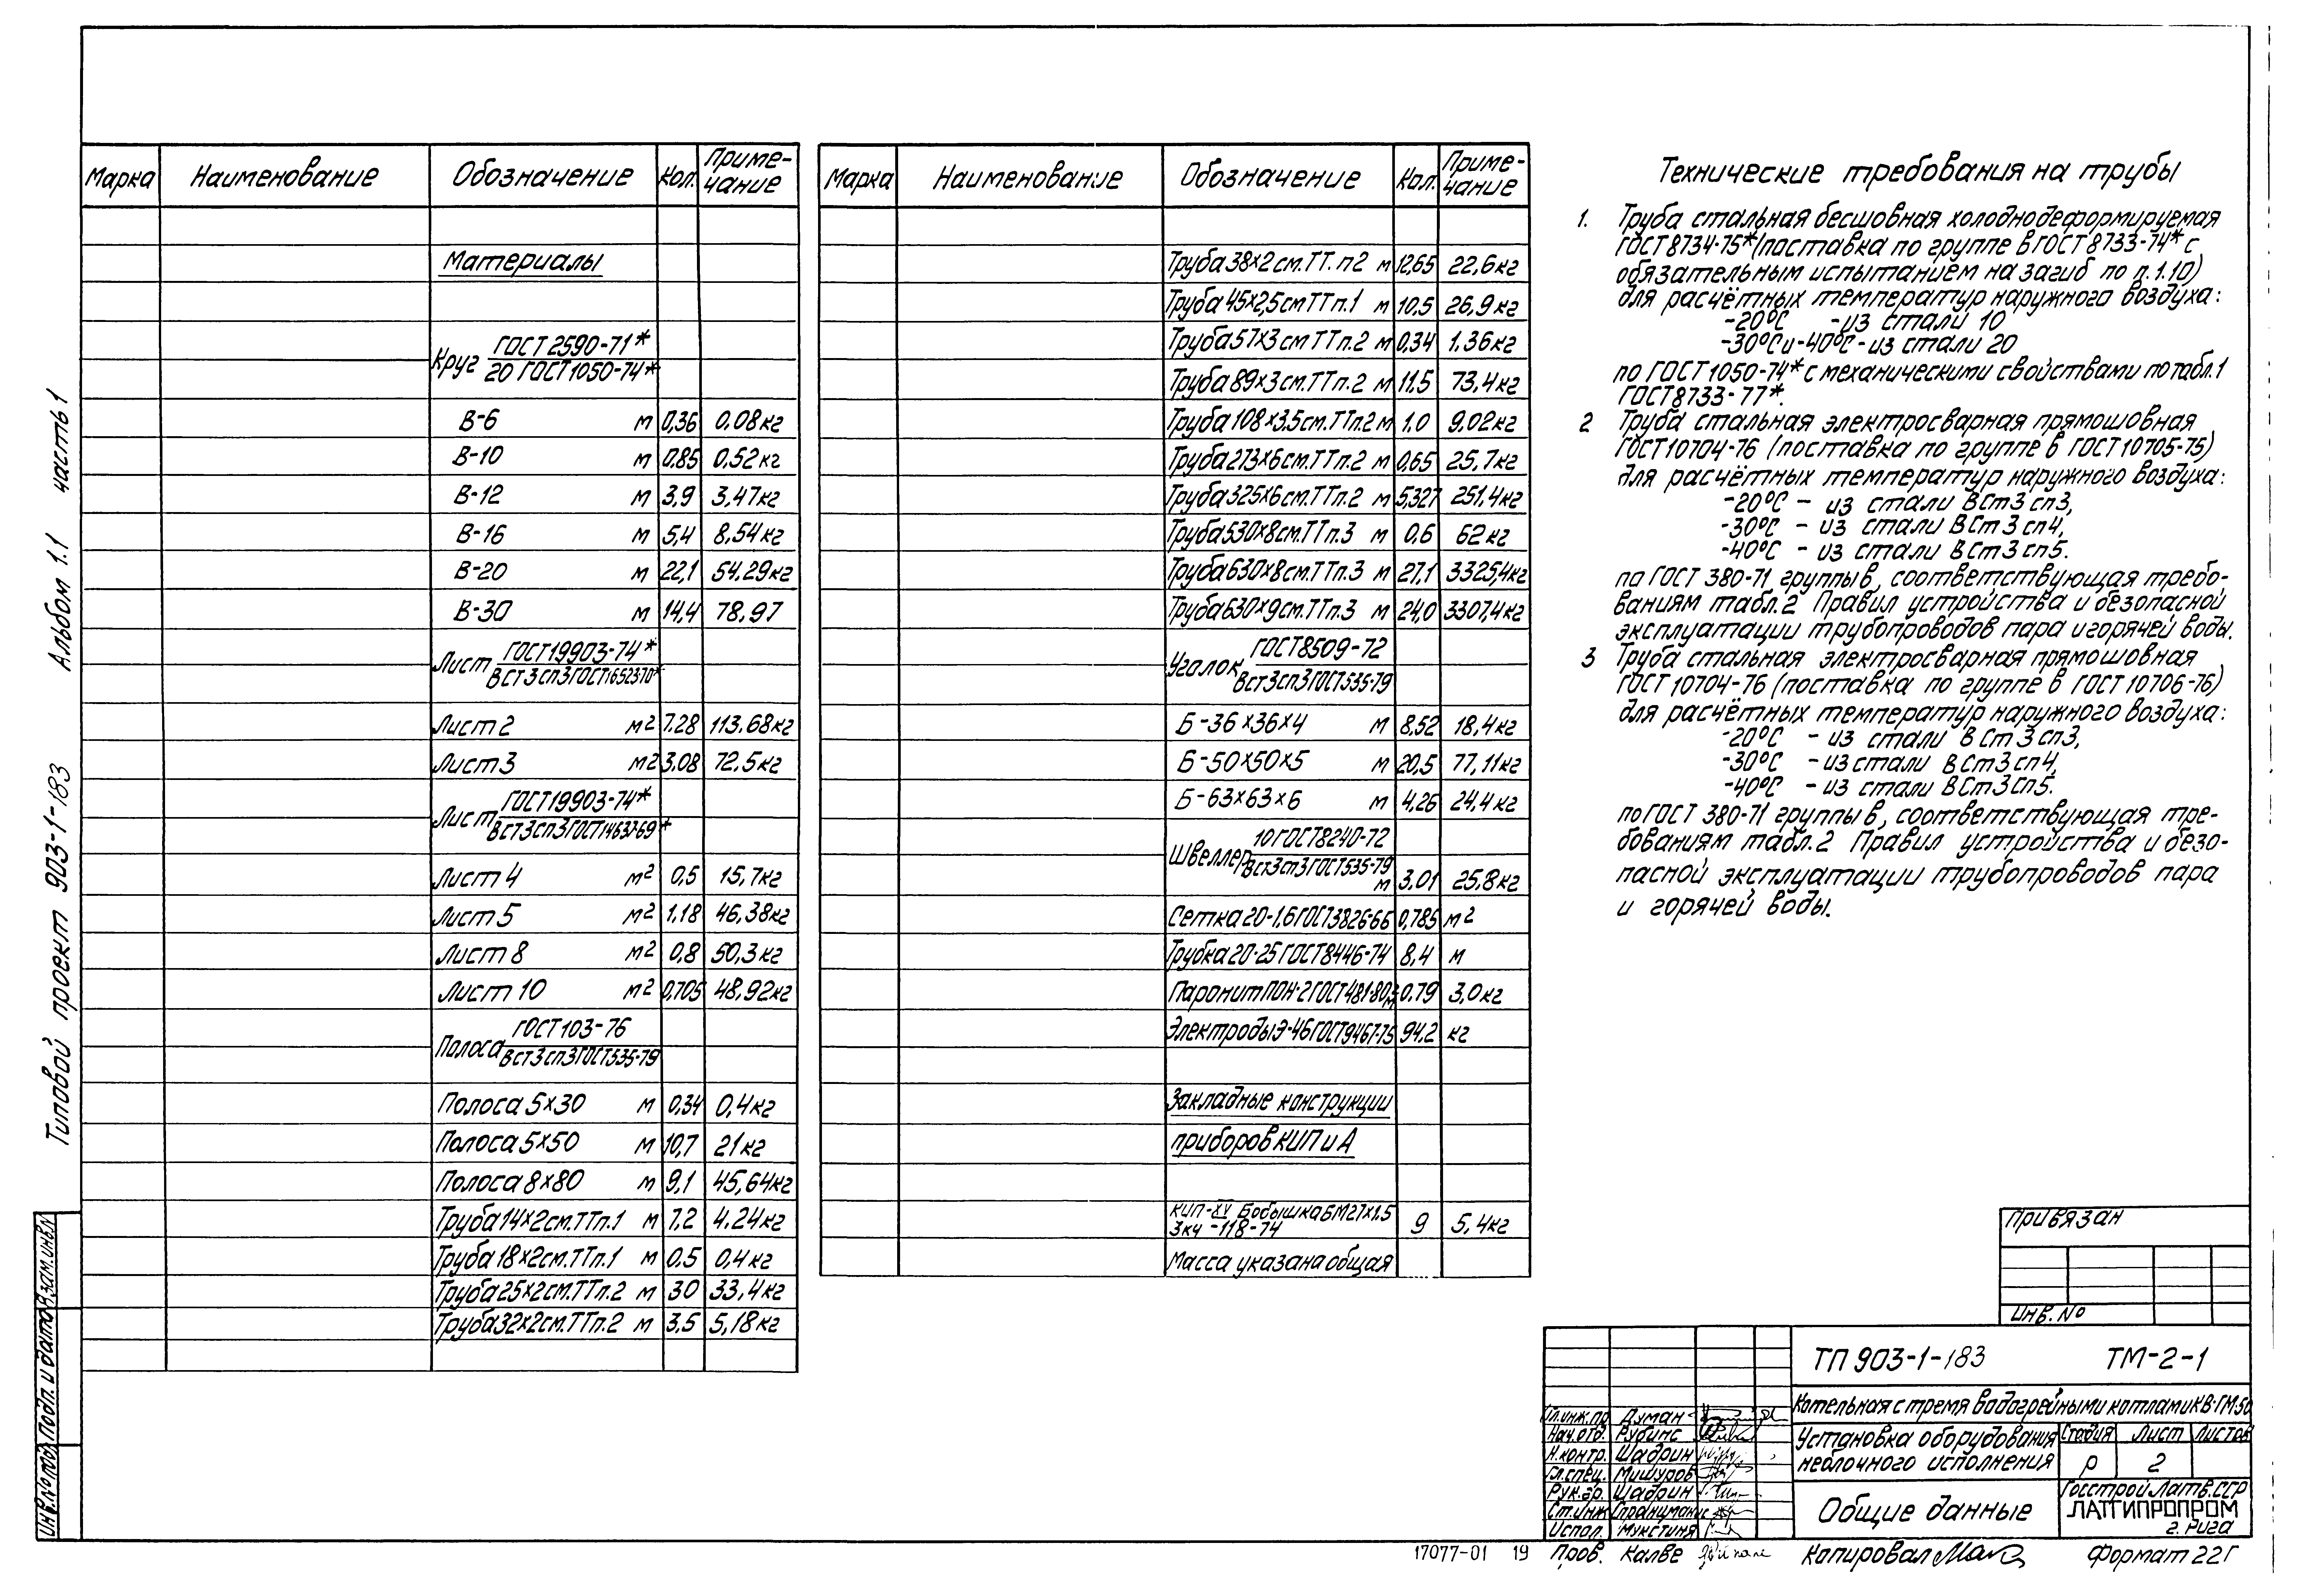 Типовой проект 903-1-183 Альбом 1.1 часть 1
Марка Наименование Обозначение Кол. Приме-чание
Материалы
Круг ГОСТ 2590-71*
20 ГОСТ 1050-74*
В-6 м 0,36 0,08кг
В-10 м 0,85 0,52кг
В-12 м 3,9 3,47кг
В-16 м 5,4 8,54кг
В-20 м 22,1 54,29кг
В-30 м 14,4 78,97
Лист ГОСТ19903-74*
ВСТ3сп3ГОСТ16523-70*
Лист 2 м2 7.28 113.68кг
Лист 3 м2 3,08 72,5кг
Лист ГОСТ19903-74*
ВСТ3сп3ГОСТ14637-69*
Лист 4 м2 0,5 15,7кг
Лист 5 м2 1,18 46,38кг
Лист 8 м2 0,8 50,3кг
Лист 10 м2 0,705 48,92кг
Полоса ГОСТ103-76
ВСТ3сп3ГОСТ535-79
Полоса 5х30 м 0,34 0,4кг
Полоса 5х50 м 10,7 21кг
Полоса 8х80 м 9,1 45,64кг
Труба 14х2см.ТТп.1 м 7.2 4.24кг
Труба 18х2см.ТТп.1 м 0.5 0,4кг
Труба 25х2см.ТТп.2 м 30 33,4кг
Труба 32х2см.ТТп.2 м 3,5 5,18кг
Марка Наименование Обозначение Кол. Приме-чание
Труба 38х2см.ТТ.п2 м 12,65 22,6кг
Труба 45х2,5смТТп.1 м 10,5 26,9кг
Труба 57х3смТТп.2 м 0,34 1,36кг
Труба 89х3см.ТТп.2 м 11,5 73,4кг
Труба 108х3.5см.ТТп.2 м 1,0 9,02кг
Труба 273х6см.ТТп.2 м 0,65 25,7кг
Труба 325х6см.ТТп.2 м 5,327 251,4кг
Труба 530х8см.ТТп.3 м 0,6 62кг
Труба 630х8см.ТТп.3 м 27,1 3325,4кг
Труба 630х9см.ТТп.3 м 24,0 3307,4кг
Уголок ГОСТ8509-72
ВСТ3сп3ГОСТ535-79
Б-36х36х4 м 8,52 18,4кг
Б-50х50х5 м 20,5 77,11кг
Б-63х63х6 м 4,26 24,4кг
Швеллер 10ГОСТ8240-72
ВСТ3сп3ГОСТ535-79
м 3,01 25,8кг
Сетка 20-1,6ГОСТ3826-66 0,785 м2
Трубка 20-25 ГОСТ8446-74 8,4 м
Паронит ПОН-2 ГОСТ481-80 0.79 3,0кг
Электроды Э-46ГОСТ9467-75 94.2 кг
Закладные конструкции
приборов КИП и А
КИП-XV Бобышка БМ27х1.5
3кч-118-74 9 5,4кг
Масса указана общая
Технические требования на трубы
1. Труба стальная бесшовная холоднодеформируемая
ГОСТ8734-75*(поставка по группе В ГОСТ 8733-74* с
обязательным испытанием на загиб по п.1.10)
для расчётных температур наружного воздуха:
-20°С - из стали 10
-30°С и -40°С - из стали 20
по ГОСТ 1050-74* с механическими свойствами по табл.1
ГОСТ8733-77*.
2 Труба стальная электросварная прямошовная
ГОСТ10704-76 (поставка по группе в ГОСТ 10705-75)
для расчётных температур наружного воздуха:
-20°С - из стали ВСт3сп3,
-30°С - из стали ВСт3сп4,
-40°С - из стали ВСт3сп5.
по ГОСТ 380-71 группы в, соответствующая требо-
ваниям табл.2 Правил устройства и безопасной
эксплуатации трубопроводов пара и горячей воды.
3 Труба стальная электросварная прямошовная
ГОСТ 10704-76 (поставка по группе в ГОСТ 10706-76)
для расчётных температур наружного воздуха:
-20°С - из стали ВСт3сп3,
-30°С - из стали ВСт3сп4,
-40°С - из стали ВСт3сп5.
по ГОСТ 380-71 группы в, соответствующая тре-
бованиям табл.2 Правил устройства и безо-
пасной эксплуатации трубопроводов пара
и горячей воды.
Привязан
Инв.№
ТП 903-1-183 ТМ-2-1
Котельная с тремя водогрейными котлами КВ-ГМ-50
Гл.инж.пр Думан
Нач.отд. Рубинс
Н.контр. Шадрин
Гл.спец. Мишуров
Рук.гр. Шадрин
Ст.инж
Испол. Мукстиня
Установка оборудования
неблочного исполнения
Стадия Лист Листов
Р 2
Общие данные
Госстрой Латв.ССР
ЛАТГИПРОПРОМ
г. Рига
17077-01 19 Пров. Калве Копировал Формат 22Г
Инв.№ подл. Подп. и дата Взам.инв.№